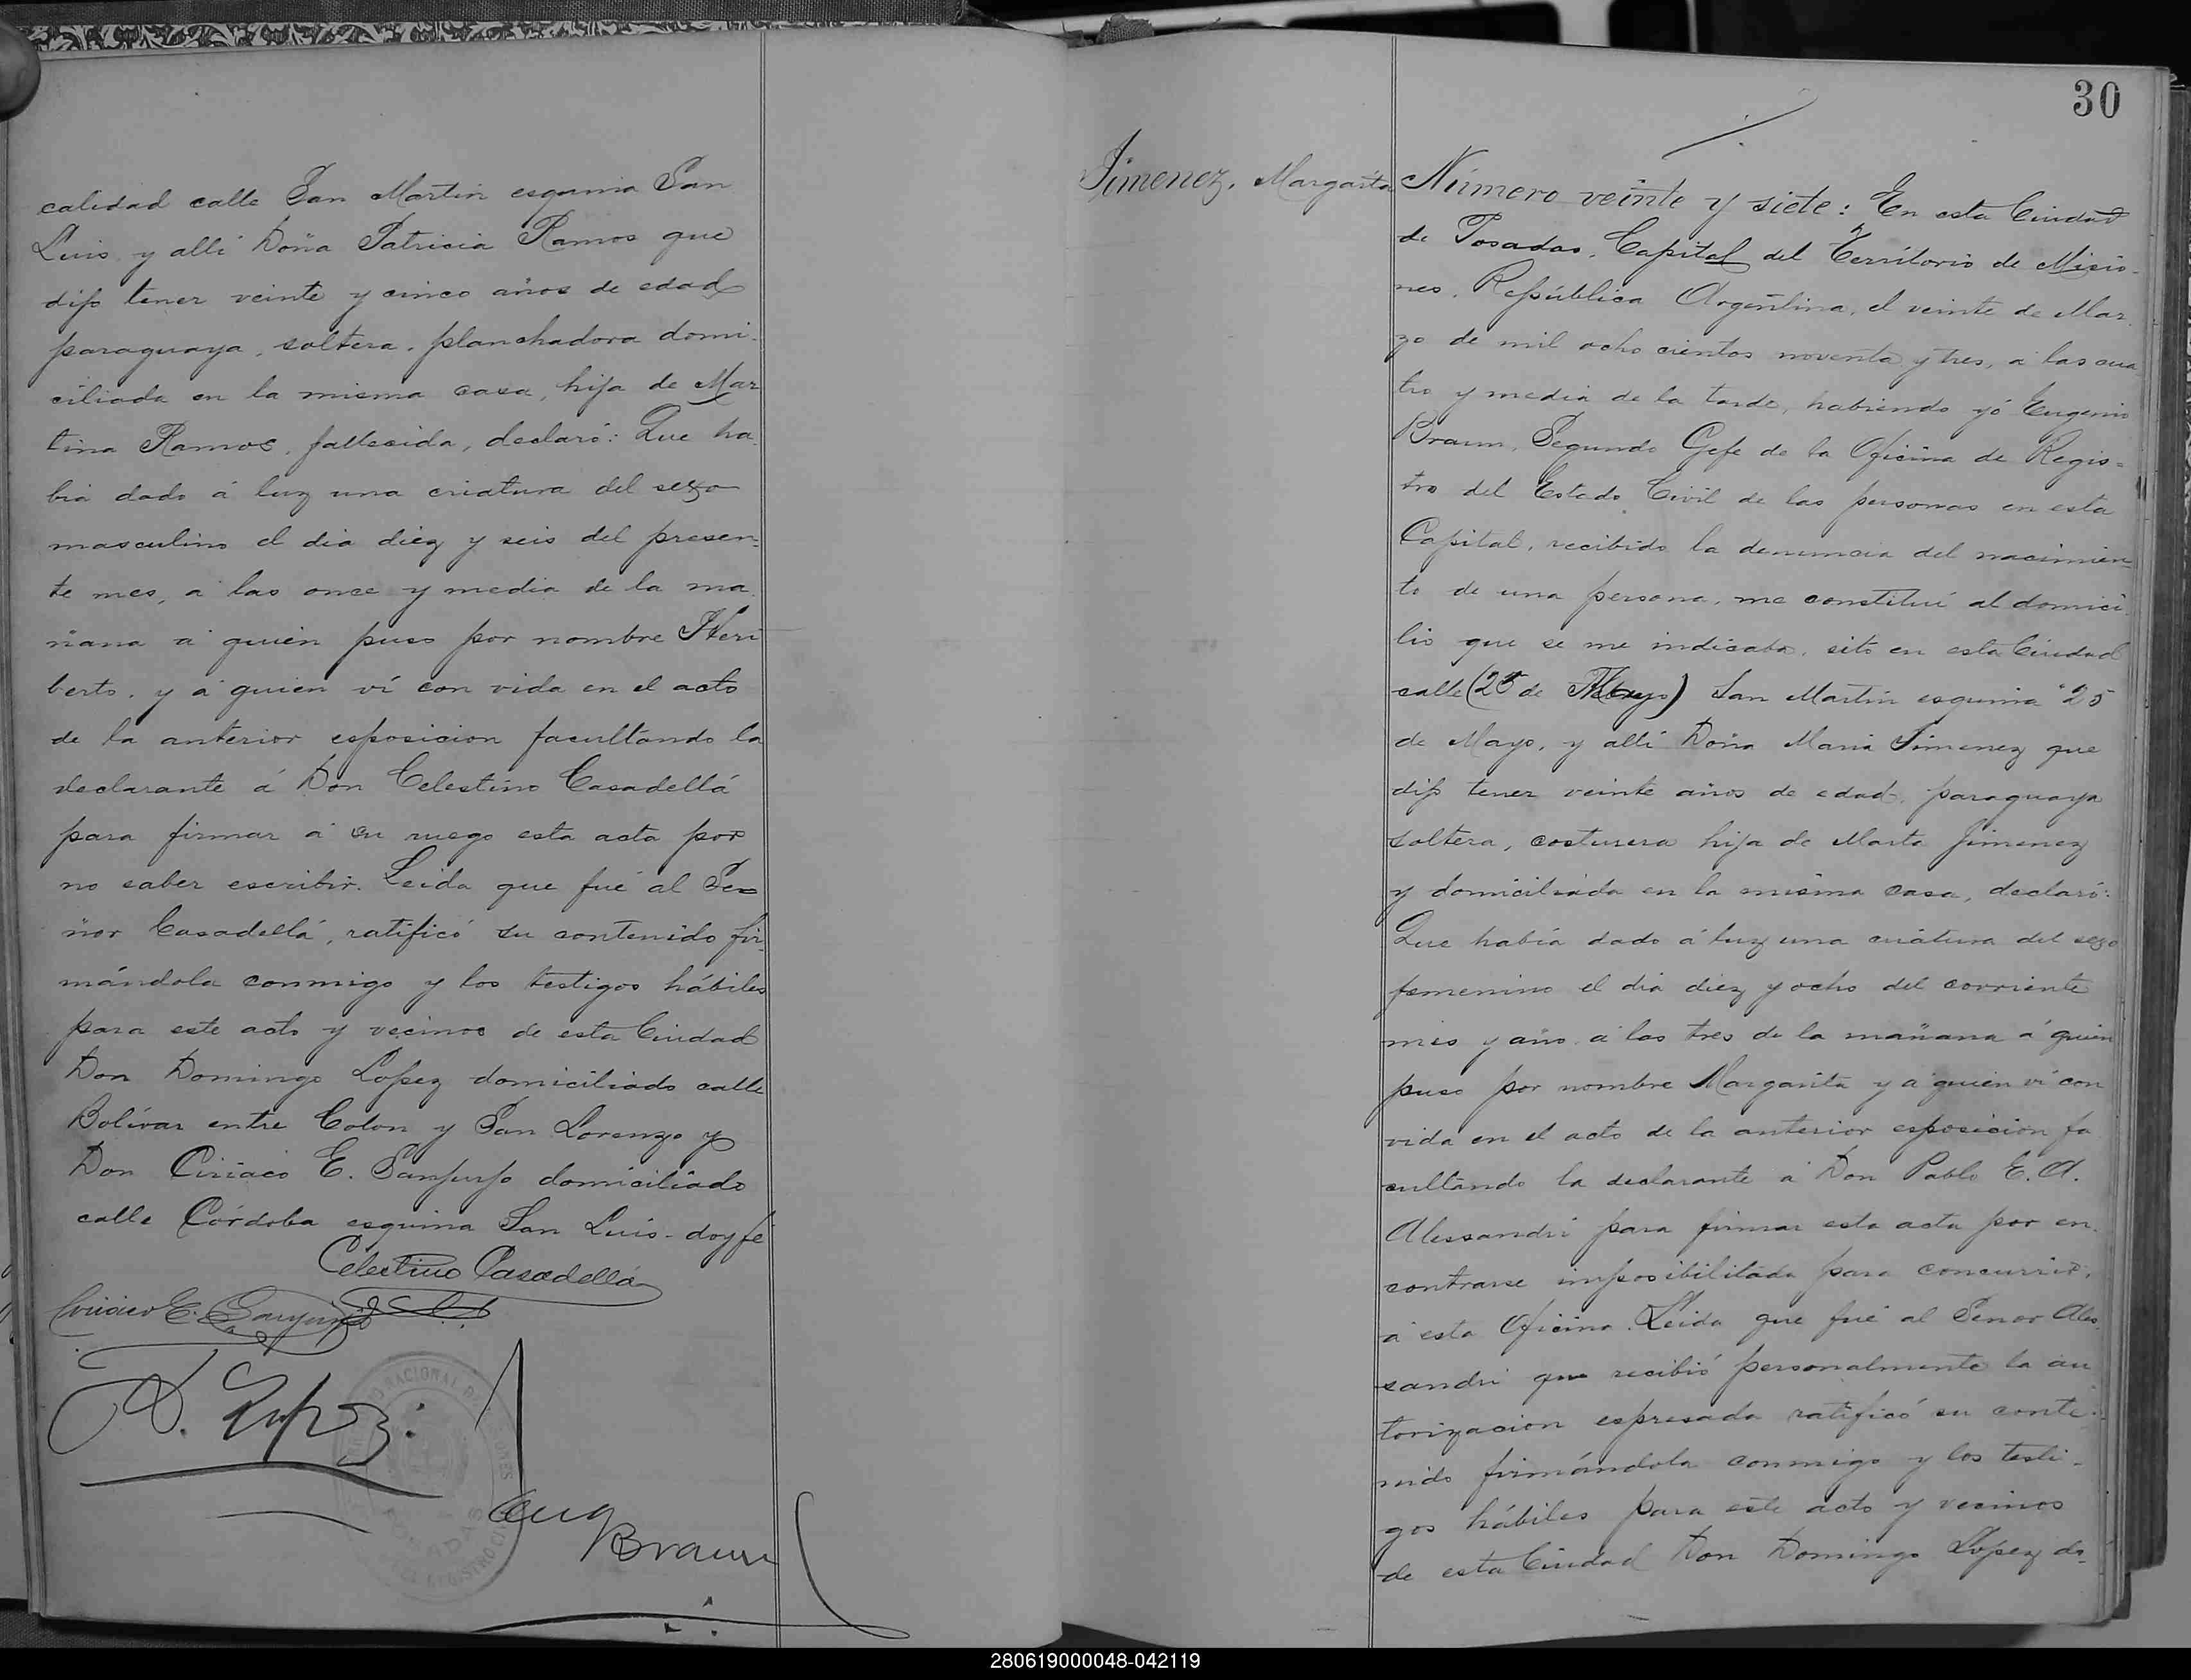 calidad calle San Martin esquina San
Luis y alli Doña Patricia Ramos que
dijo tener veinte y cinco años de edad
paraguaya, soltera, planchadora domi-
ciliada en la misma casa, hija de Mar
tina Ramos, fallecida, declaró: Que ha
bia dado á luz una criatura del sexo
masculino el dia diez y seis del presen-
te mes, a las once y media de la ma
ñana a quien puso por nombre Heri
berto, y á quien ví con vida en el acto
de la anterior esposicion facultando la
declarante á Don Celestino Casadellá
para firmar á su ruego esta acta por
no saber escribir. Leida que fué al Se-
ñor Casadellá, ratificó su contenido fir-
mándola conmigo y los testigos hábiles
para este acto y vecinos de esta Ciudad
Don Domingo Lopez domiciliado calle
Bolívar entre Colon y San Lorenzo y
Don Ciriaco E. Sanjurjo domiciliado
calle Córdoba esquina San Luis - doy fé
Celestino Casadellá
Ciriaco E. Sanjurjo
D. Lopez
Eug
Braun
30
Jimenez, Margarita
Número veinte y siete: En esta Ciudad
de Posadas, Capital del Territorio de Misio-
nes, República Argentina, el veinte de Mar
zo de mil ocho cientos noventa y tres, a las cua
tro y media de la tarde, habiendo yó Eugenio
Braun, Segundo Gefe de la Oficina de Regis-
tro del Estado Civil de las personas en esta
Capital, recibido la denuncia del nacimien-
to de una persona, me constituí al domici
lio que se me indicaba, sito en esta Ciudad
calle (25 de Mayo) San Martin esquina 25
de Mayo, y alli Doña Maria Jimenez que
dijo tener veinte años de edad, paraguaya
soltera, costurera hija de Marta Jimenez
y domiciliada en la misma casa, declaró:
Que había dado á luz una criatura del sexo
femenino el dia diez y ocho del corriente
mes y año a las tres de la mañana a quien
puso por nombre Margarita y a quien ví con
vida en el acto de la anterior esposicion fa
cultando la declarante a Don Pablo E. A.
Alessandri para firmar esta acta por en
contrarse imposibilitada para concurrir,
a esta Oficina. Leida que fué al Senor Ales
sandri que recibió personalmente la au
torizacion espresada ratificó su conte-
nido firmándola conmigo y los testi-
gos hábiles para este acto y vecinos
de esta Ciudad Don Domingo Lopez do-
280619000048-042119